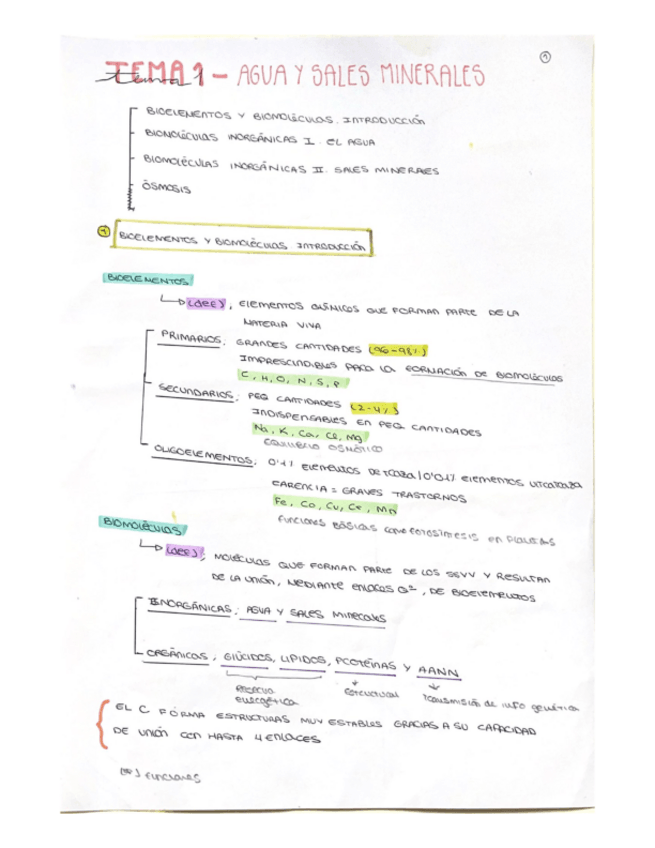 1
TEMA 1 – AGUA Y SALES MINERALES
tema 1
BIOELEMENTOS Y BIOMOLÉCULAS. INTRODUCCIÓN
BIOMOLÉCULAS INORGÁNICAS I. EL AGUA
BIOMOLÉCULAS INORGÁNICAS II. SALES MINERALES
ÓSMOSIS
1 BIOELEMENTOS Y BIOMOLÉCULAS. INTRODUCCIÓN
BIOELEMENTOS
(def), ELEMENTOS QUÍMICOS QUE FORMAN PARTE DE LA
MATERIA VIVA
PRIMARIOS; GRANDES CANTIDADES (96-98%)
IMPRESCINDIBLES PARA LA FORMACIÓN DE BIOMOLÉCULAS
C, H, O, N, S, P
SECUNDARIOS; PEQ CANTIDADES (2-4%)
INDISPENSABLES EN PEQ CANTIDADES
Na, K, Ca, Cl, Mg
EQUILIBRIO OSMÓTICO
OLIGOELEMENTOS; 0'1% ELEMENTOS DE TRAZA | 0'01% ELEMENTOS ULTRATRAZA
CARENCIA = GRAVES TRASTORNOS
Fe, Co, Cu, Mn
FUNCIONES BÁSICAS COMO FOTOSÍNTESIS EN PLANTAS
BIOMOLÉCULAS
(def); MOLÉCULAS QUE FORMAN PARTE DE LOS SSVV Y RESULTAN
DE LA UNIÓN, MEDIANTE ENLACES Q², DE BIOELEMENTOS
INORGÁNICAS; AGUA Y SALES MINERALES
ORGÁNICAS; GLÚCIDOS, LIPIDOS, PROTEÍNAS Y AANN
RESERVA ENERGÉTICA
ESTRUCTURAL
TRANSMISIÓN DE INFO GENÉTICA
EL C FORMA ESTRUCTURAS MUY ESTABLES GRACIAS A SU CAPACIDAD
DE UNIÓN CON HASTA 4 ENLACES
FUNCIONES